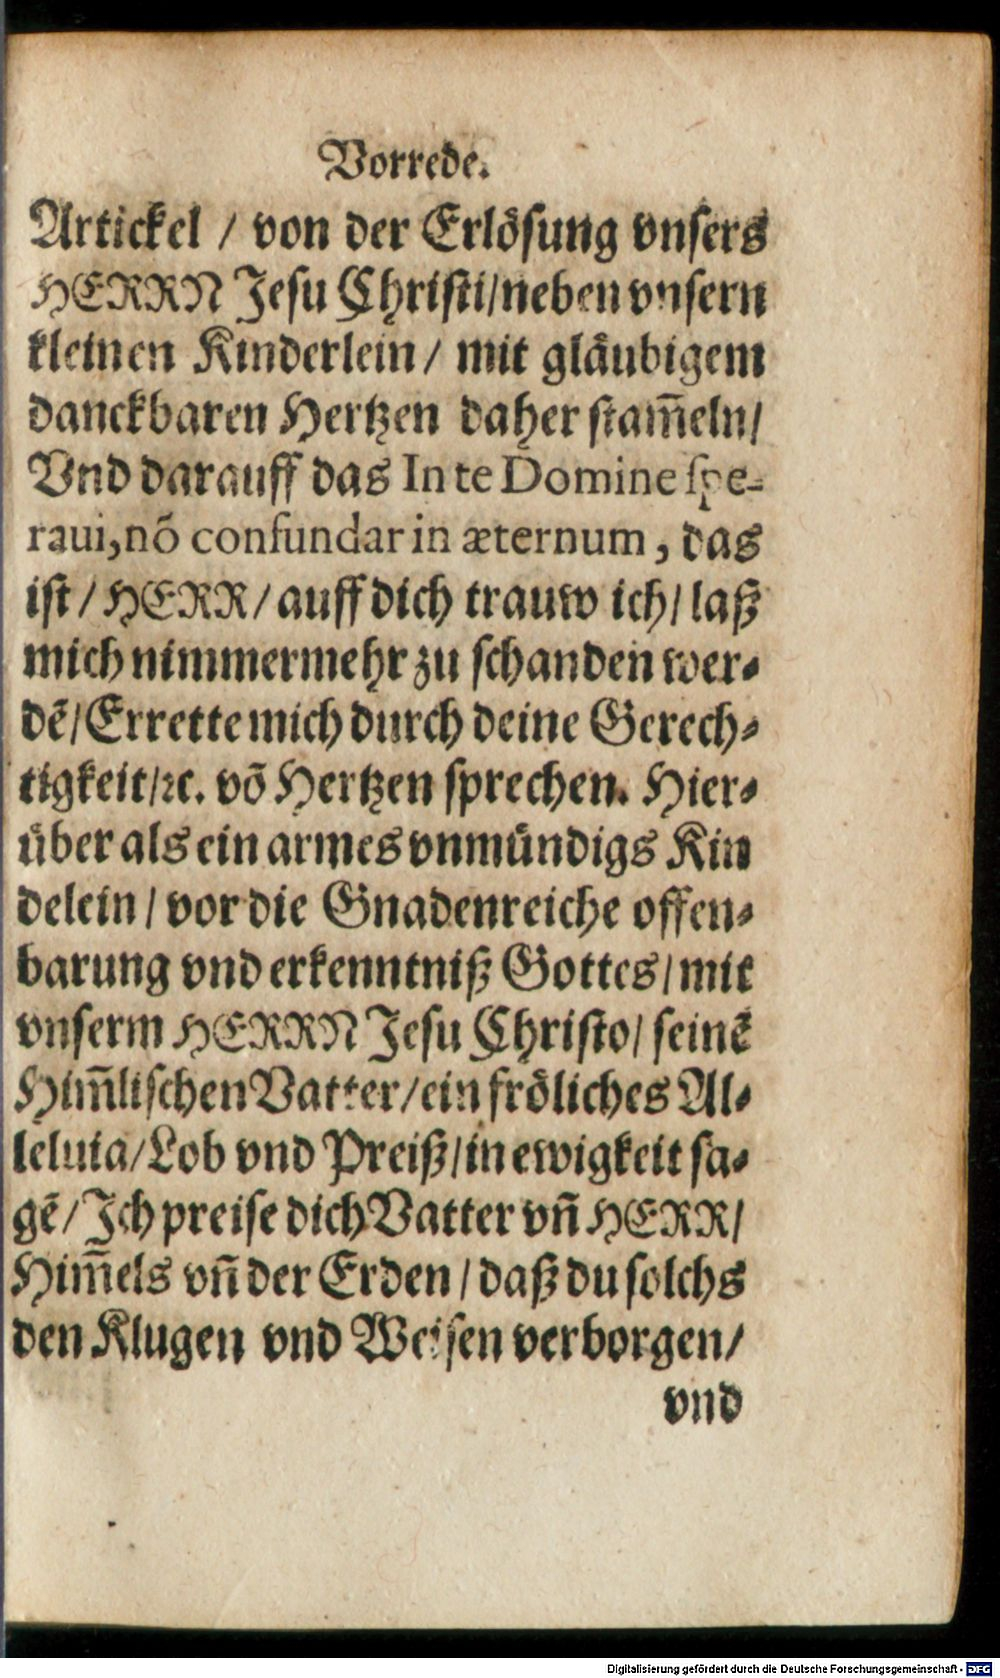 Vorrede.
Artickel / von der Erlösung vnsers
HERRN Jesu Christi/neben vnsern
kleinen Kinderlein/ mit gläubigem
danckbaren Hertzen daher stam̃eln/
Vnd darauff das In te Domine spe-
raui, nõ confundar in æternum, das
ist/ HERR/ auff dich trauw ich/ laß
mich nimmermehr zu schanden wer-
dẽ/ Errette mich durch deine Gerech-
tigkeit/ꝛc. võ Hertzen sprechen. Hier-
über als ein armes vnmündigs Kin
delein / vor die Gnadenreiche offen-
barung vnd erkenntniß Gottes/ mit
vnserm HERRN Jesu Christo/ seinẽ
Him̃lischen Vatter/ein fröliches Al-
leluia/Lob vnd Preiß/in ewigkeit sa-
gẽ/ Ich preise dich Vatter vñ HERR/
Him̃els vñ der Erden / daß du solchs
den Klugen vnd Weisen verborgen/
vnd
Digitalisierung gefördert durch die Deutsche Forschungsgemeinschaft - DFG